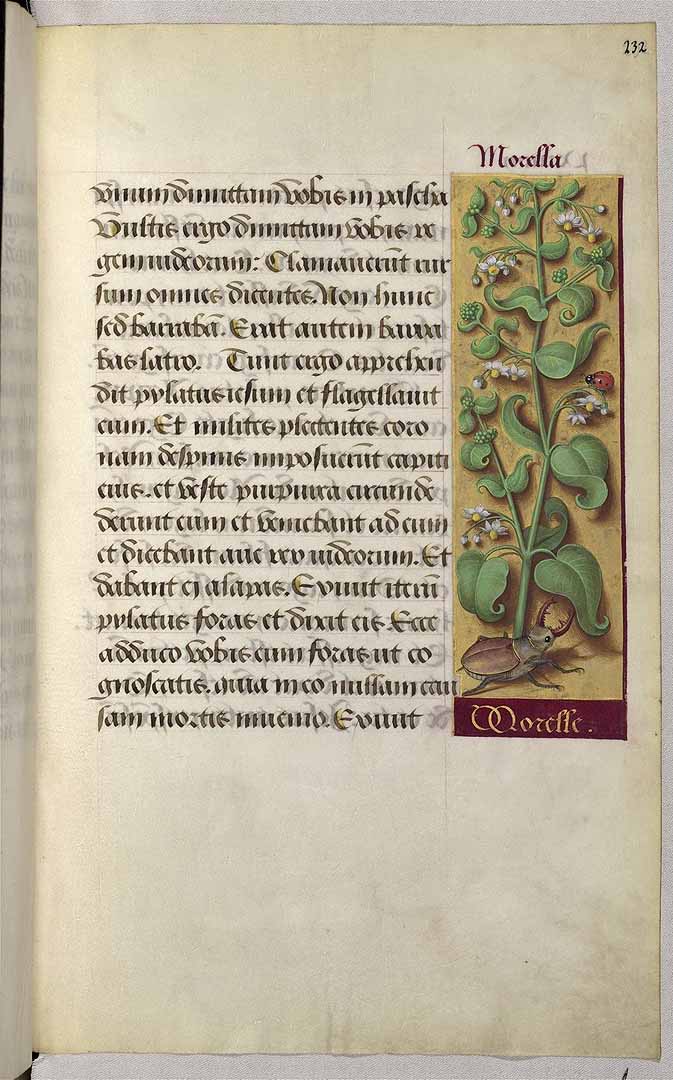 232
Morella
vnum dimittam vobis in pascha
Vultis ergo dimittam vobis re
gem iudeorum: Clamauerūt rur
sum omnes dicentes. Non hunc
sed barrabā. Erat autem barra
bas latro. Tunc ergo apprehen
dit pylatus iesum et flagellauit
eum. Et milites plectentes coro
nam despinis imposuerūt capiti
eius. et veste purpurea circunde
derunt eum et veniebant ad eum
et dicebant aue rex iudeorum. Et
dabant ei alapas. Exiuit iterū
pylatus foras et dixit eis. Ecce
adduco vobis eum foras ut co
gnoscatis. quia in eo nullam cau
sam mortis inuenio. Exiuit
Morelle.